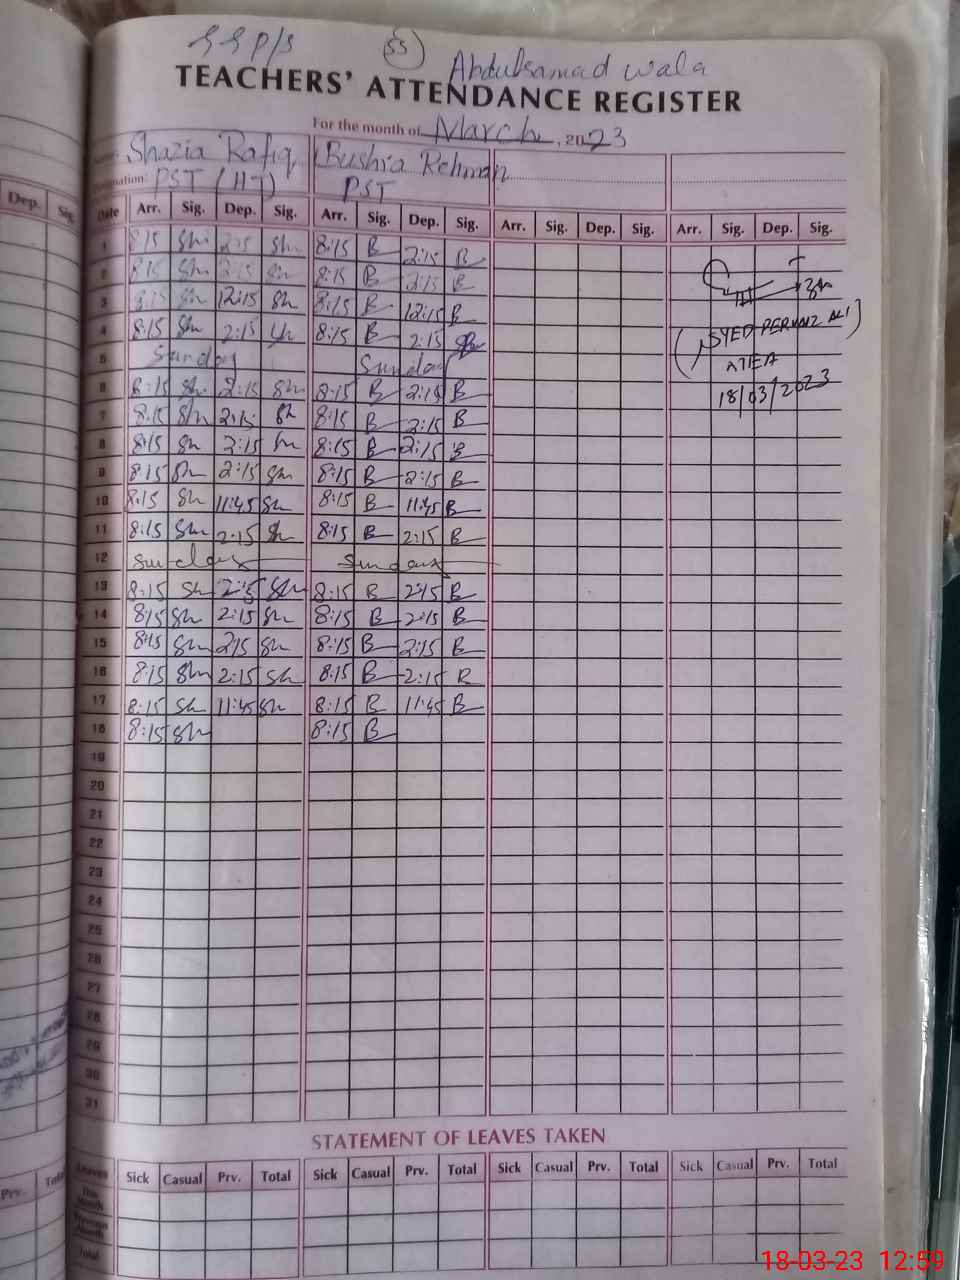 GGP/S 55 Abdulsamad wala
TEACHERS' ATTENDANCE REGISTER
For the month of March, 2023
Name: Shazia Rafiq Bushra Rehman
Designation: PST (HT) PST
Dep. Sig.
Date Arr. Sig. Dep. Sig. Arr. Sig. Dep. Sig. Arr. Sig. Dep. Sig. Arr. Sig. Dep. Sig.
1 8:15 Sh 2:15 Sh 8:15 B 2:15 B
2 8:15 Sh 2:15 Sh 8:15 B 2:15 B
3 8:15 Sh 12:15 Sh 8:15 B 12:15 B
4 8:15 Sh 2:15 Sh 8:15 B 2:15 B
(SYED PERVAIZ ALI)
5 Sunday Sunday
6 8:15 Sh 2:15 Sh 8:15 B 2:15 B
18/03/2023
7 8:15 Sh 2:15 Sh 8:15 B 2:15 B
8 8:15 Sh 2:15 Sh 8:15 B 2:15 B
9 8:15 Sh 2:15 Sh 8:15 B 2:15 B
10 8:15 Sh 11:45 Sh 8:15 B 11:45 B
11 8:15 Sh 2:15 Sh 8:15 B 2:15 B
12 Sunday Sunday
13 8:15 Sh 2:15 Sh 8:15 B 2:15 B
14 8:15 Sh 2:15 Sh 8:15 B 2:15 B
15 8:15 Sh 2:15 Sh 8:15 B 2:15 B
16 8:15 Sh 2:15 Sh 8:15 B 2:15 B
17 8:15 Sh 11:45 Sh 8:15 B 11:45 B
18 8:15 Sh 8:15 B
19
20
21
22
23
24
25
26
27
28
29
30
31
STATEMENT OF LEAVES TAKEN
Prv. Total
Leaves Sick Casual Prv. Total Sick Casual Prv. Total Sick Casual Prv. Total Sick Casual Prv. Total
This Month
Previous Month
Total
18-03-23 12:59